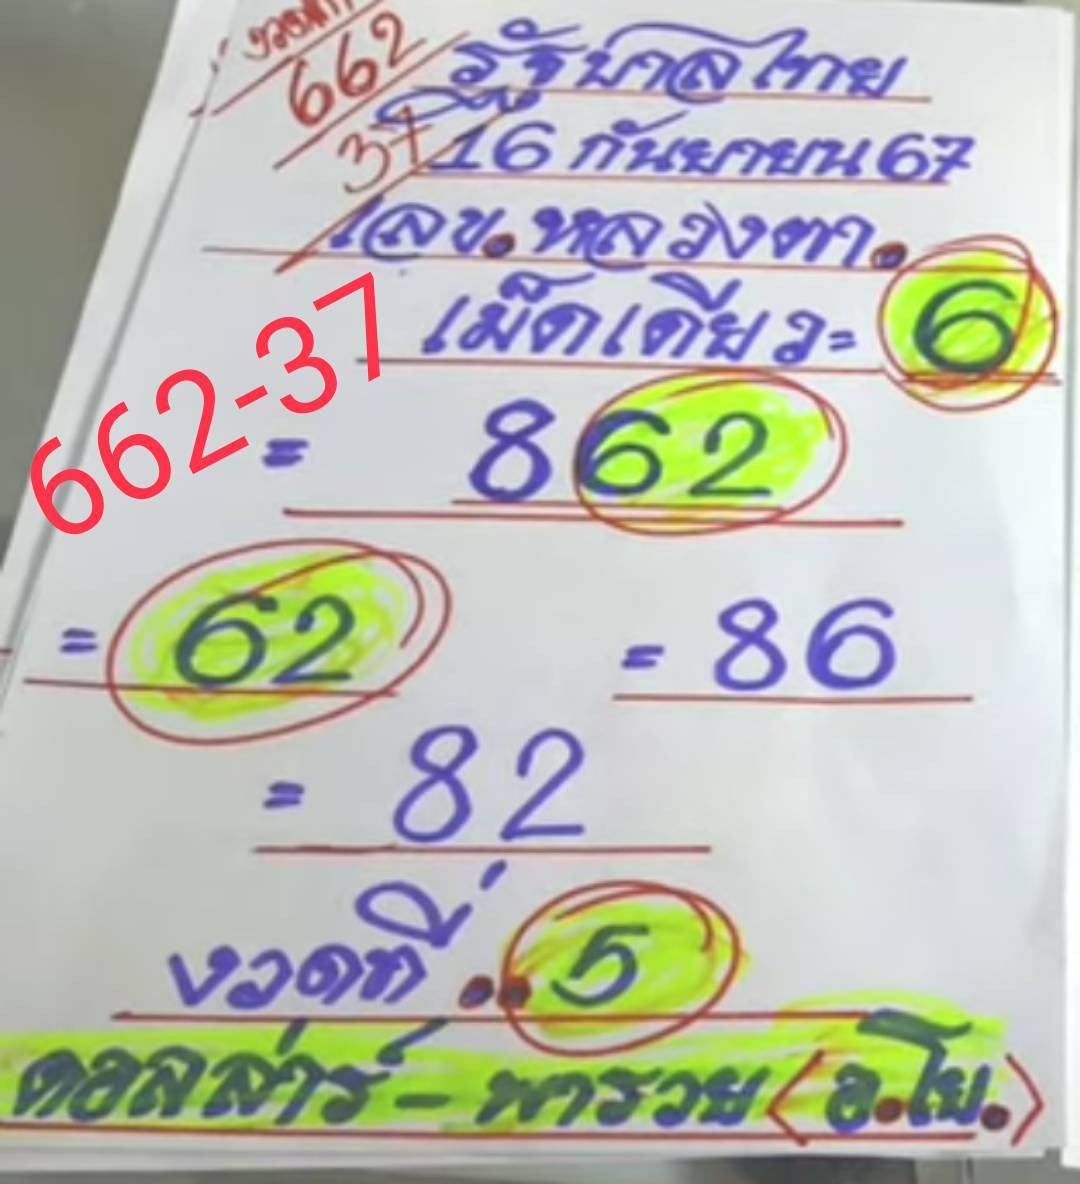 662
37
รัฐบาลไทย
ที่ 16 กันยายน 67
เลข.หลวงตา.
เม็ดเดียว= 6
662-37
= 862
= 62 = 86
= 82
งวดที่..5
ดอลล่าร์-พารวย<อ.โย.>